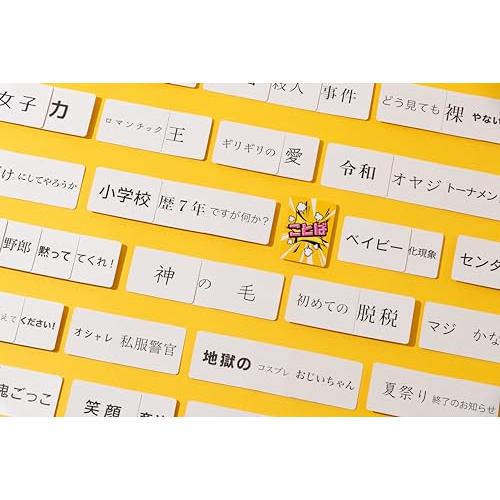 殺人 事件
どう見ても 裸 やない
女子 力
ロマンチック 王
ギリギリの 愛
令和 オヤジ トーナメン
け にしてやろうか
小学校 歴7年 ですが何か?
ことば
ベイビー 化現象
センタ
野郎 黙って てくれ!
神 の 毛
初めての 脱税
マジ かな
えて ください!
オシャレ 私服警官
地獄の コスプレ おじいちゃん
夏祭り 終了のお知らせ
鬼ごっこ
笑顔